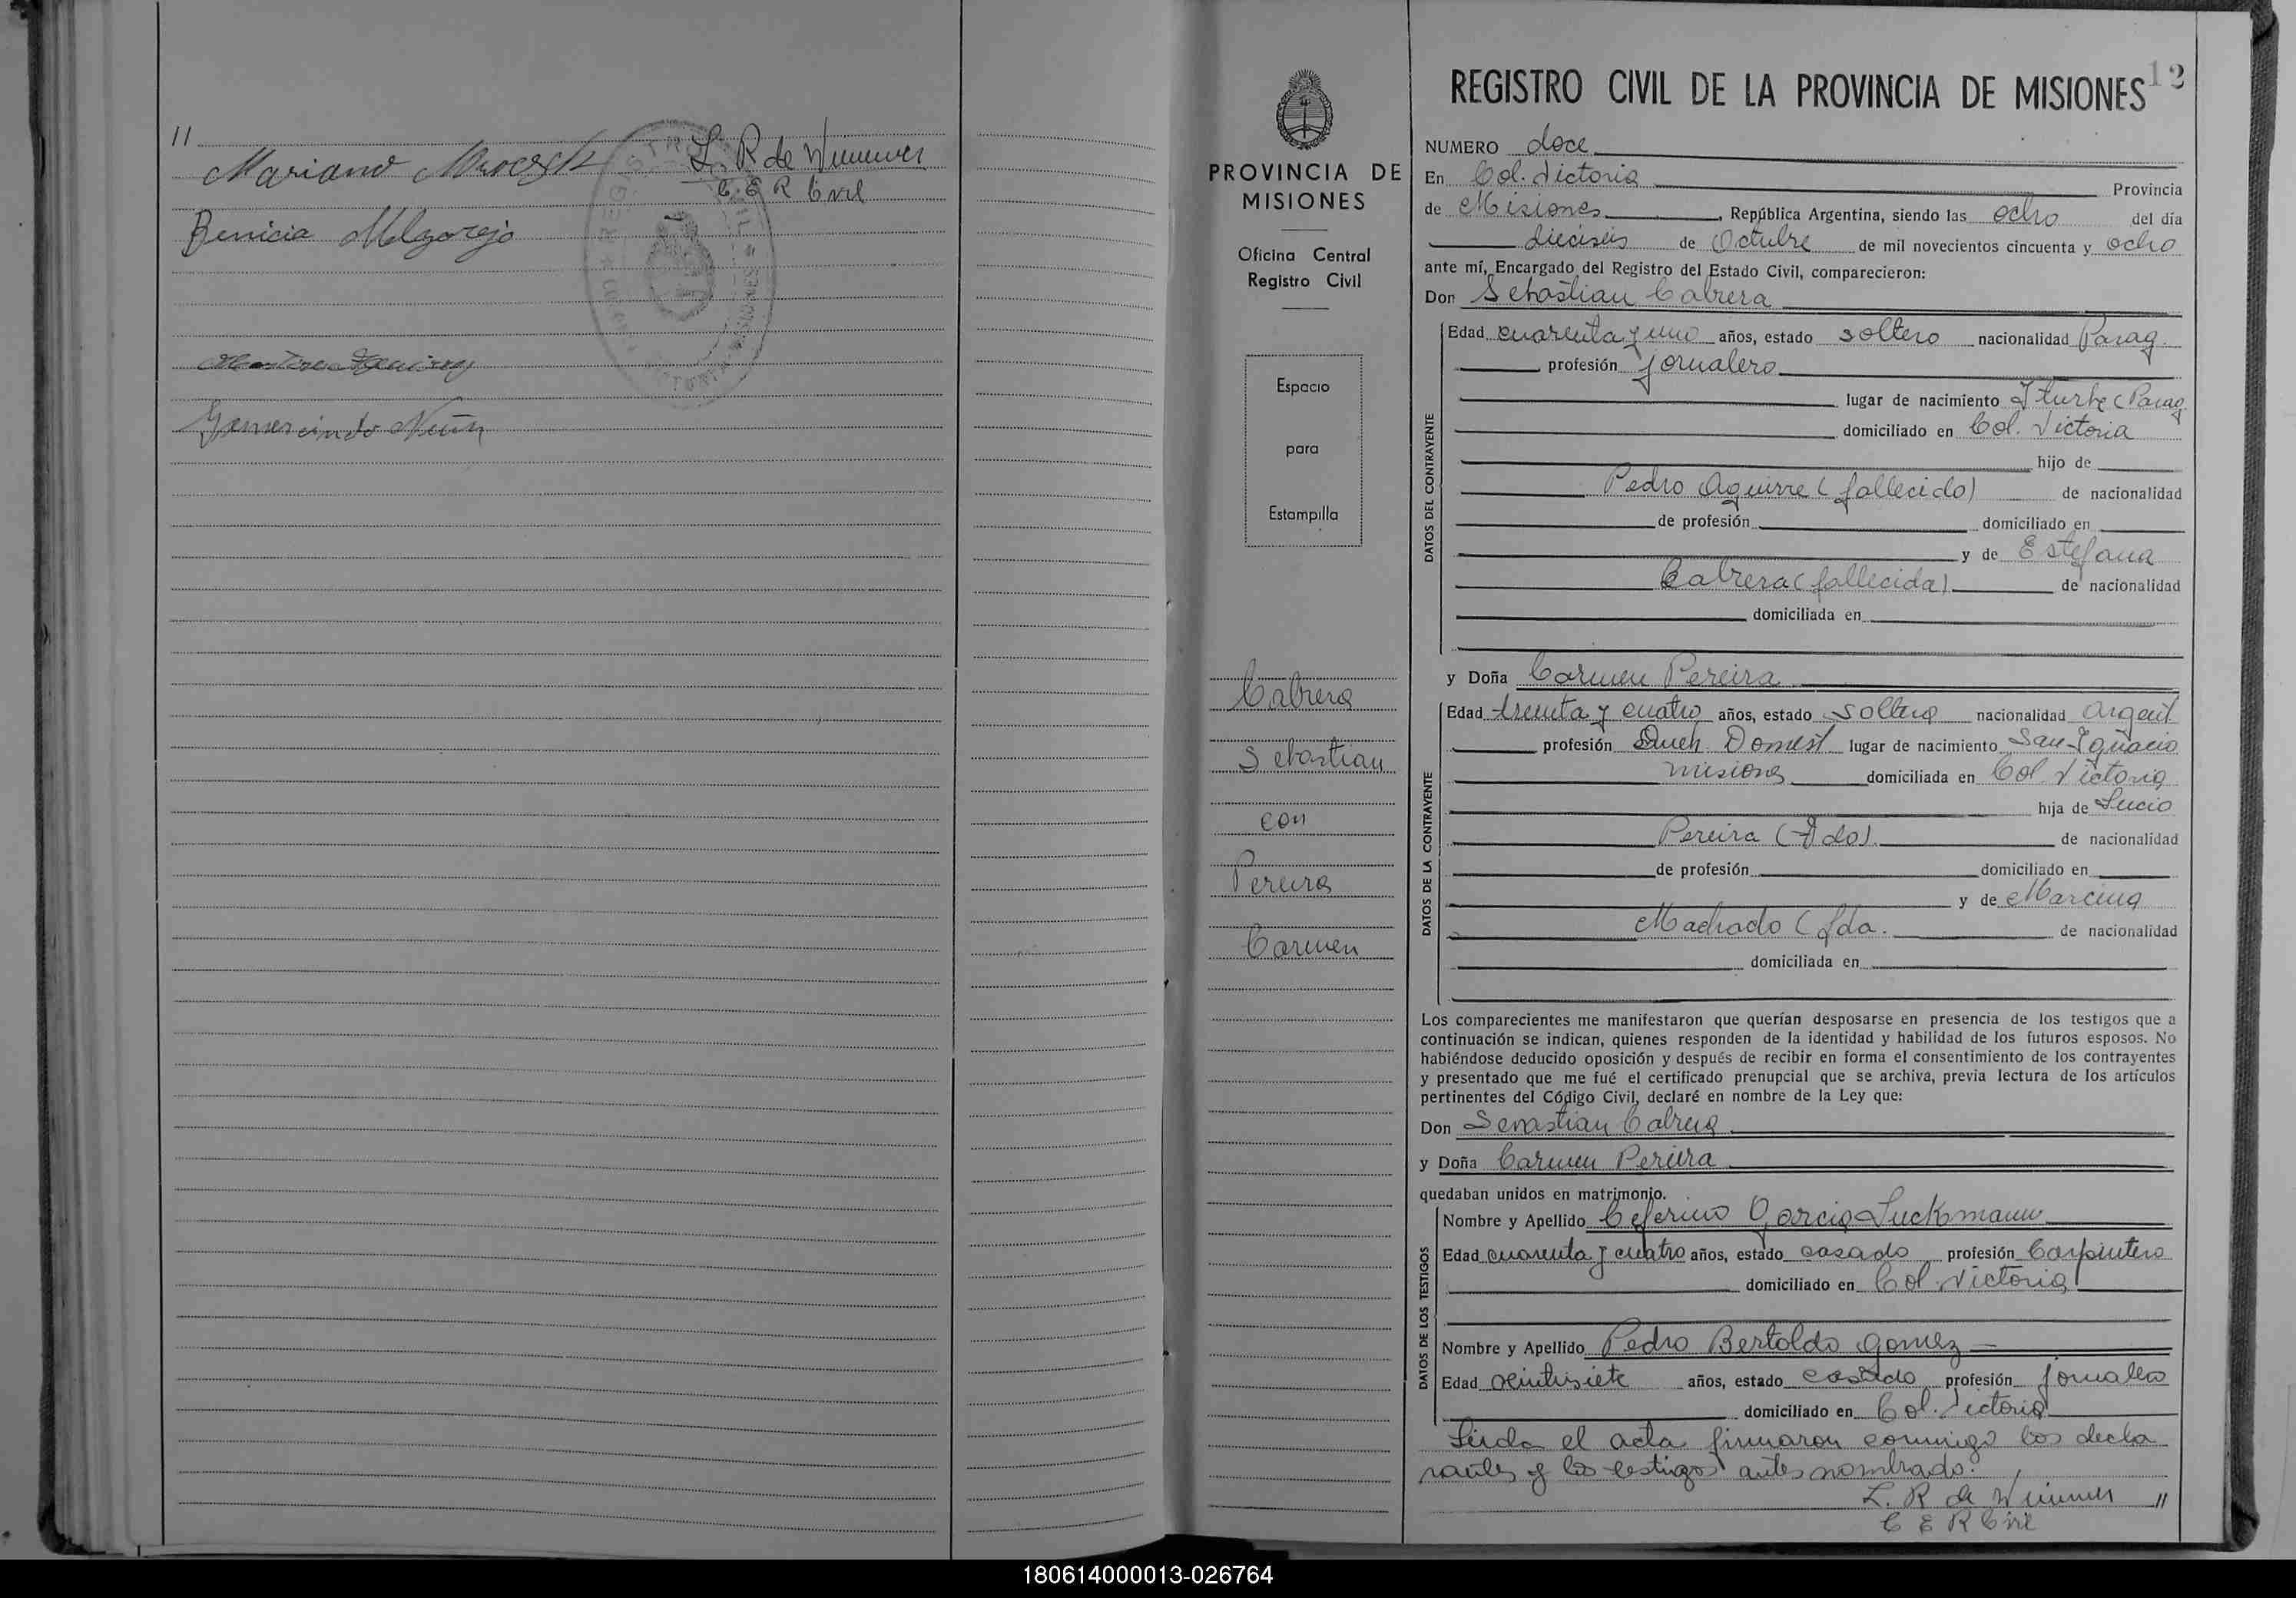 11
Mariano
L. R de Wimmer
C. E R Civil
Benicia Melgarejo
Gumercindo
PROVINCIA DE
MISIONES
Oficina Central
Registro Civil
Espacio
para
Estampilla
Cabrera
Sebastian
con
Pereira
Carmen
12
REGISTRO CIVIL DE LA PROVINCIA DE MISIONES
NUMERO doce
En Col. Victoria Provincia
de Misiones, República Argentina, siendo las ocho del día
dieciseis de Octubre de mil novecientos cincuenta y ocho
ante mí, Encargado del Registro del Estado Civil, comparecieron:
Don Sebastian Cabrera
DATOS DEL CONTRAYENTE
Edad cuarenta y uno años, estado soltero nacionalidad Parag.
profesión jornalero
lugar de nacimiento Iturbe (Parag
domiciliado en Col. Victoria
hijo de
Pedro Aguirre (fallecido) de nacionalidad
de profesión domiciliado en
y de Estefana
Cabrera (fallecida) de nacionalidad
domiciliada en
y Doña Carmen Pereira
DATOS DE LA CONTRAYENTE
Edad treinta y cuatro años, estado soltera nacionalidad Argent.
profesión Queh. Domést. lugar de nacimiento San Ignacio
misiones domiciliada en Col Victoria
hija de Lucio
Pereira (fdo). de nacionalidad
de profesión domiciliado en
y de Marcina
Machado (fda. de nacionalidad
domiciliada en
Los comparecientes me manifestaron que querían desposarse en presencia de los testigos que a
continuación se indican, quienes responden de la identidad y habilidad de los futuros esposos. No
habiéndose deducido oposición y después de recibir en forma el consentimiento de los contrayentes
y presentado que me fué el certificado prenupcial que se archiva, previa lectura de los artículos
pertinentes del Código Civil, declaré en nombre de la Ley que:
Don Sevastian Cabrera
y Doña Carmen Pereira
quedaban unidos en matrimonio.
DATOS DE LOS TESTIGOS
Nombre y Apellido Ceferino Garcia Luckmann
Edad cuarenta y cuatro años, estado casado profesión Carpintero
domiciliado en Col. Victoria
Nombre y Apellido Pedro Bertoldo Gomez
Edad veintisiete años, estado casado profesión jornalero
domiciliado en Col. Victoria
Leida el acta firmaron conmigo los decla
rantes y los testigos antes nombrado.
L. R de Wimmer 11
C E R Civil
180614000013-026764